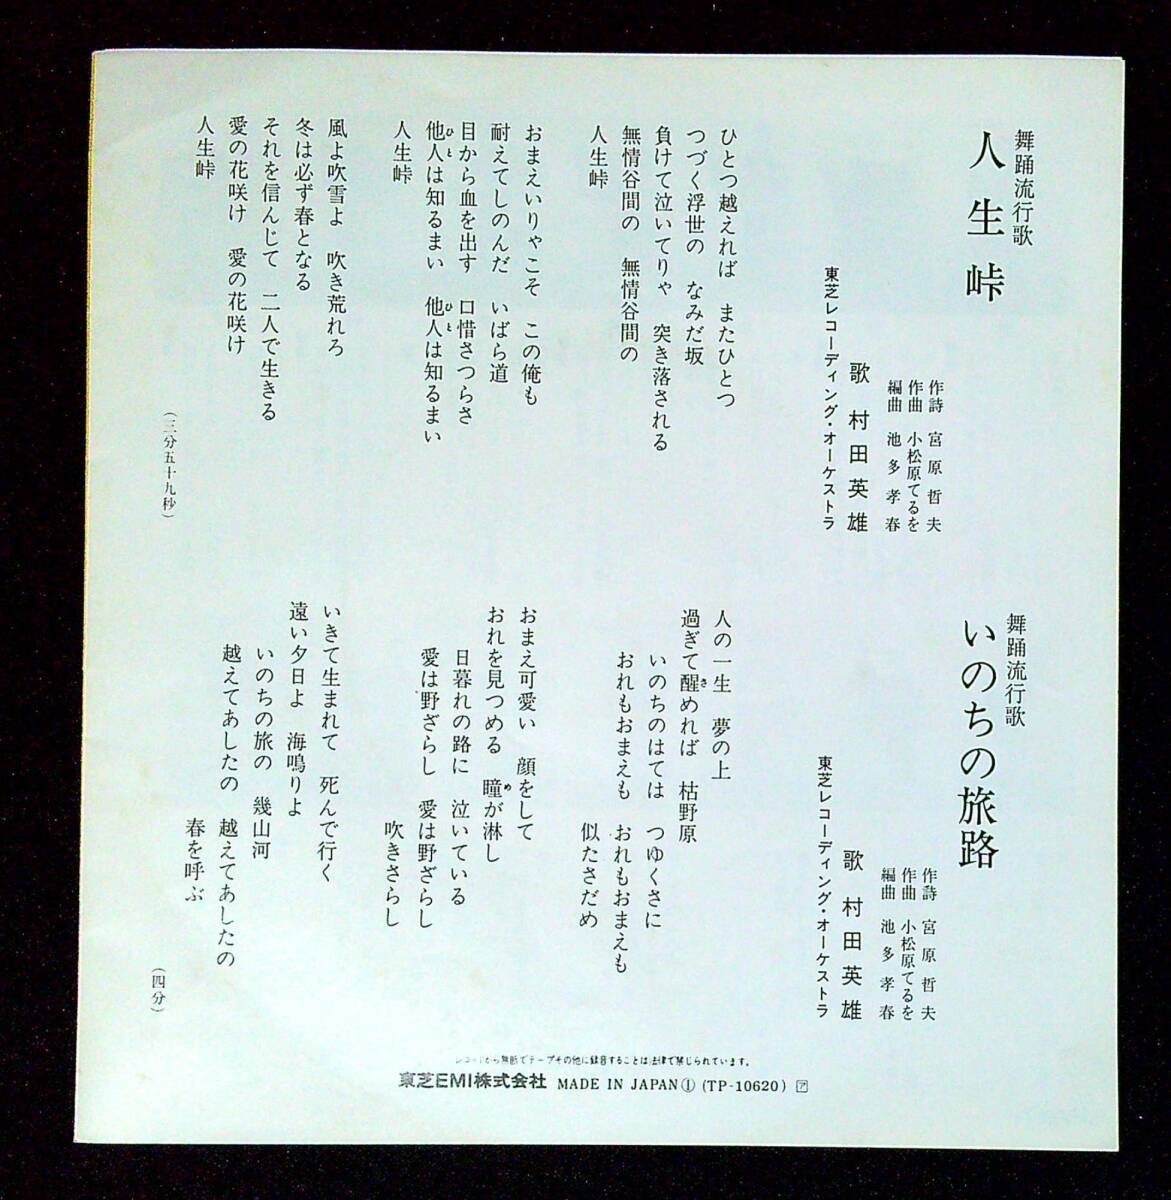 舞踊流行歌
人生峠
作詩 宮原哲夫
作曲 小松原てるを
編曲 池多孝春
歌 村田英雄
東芝レコーディング・オーケストラ
ひとつ越えれば またひとつ
つづく浮世の なみだ坂
負けて泣いてりゃ 突き落される
無情谷間の 無情谷間の
人生峠
おまえいりゃこそ この俺も
耐えてしのんだ いばら道
目から血を出す 口惜さつらさ
他人は知るまい 他人は知るまい
ひと ひと
人生峠
風よ吹雪よ 吹き荒れろ
冬は必ず春となる
それを信んじて 二人で生きる
愛の花咲け 愛の花咲け
人生峠
(三分五十九秒)
舞踊流行歌
いのちの旅路
作詩 宮原哲夫
作曲 小松原てるを
編曲 池多孝春
歌 村田英雄
東芝レコーディング・オーケストラ
人の一生 夢の上
過ぎて醒めれば 枯野原
さ
いのちのはては つゆくさに
おれもおまえも おれもおまえも
似たさだめ
おまえ可愛い 顔をして
おれを見つめる 瞳が淋し
め
日暮れの路に 泣いている
愛は野ざらし 愛は野ざらし
吹きさらし
いきて生まれて 死んで行く
遠い夕日よ 海鳴りよ
いのちの旅の 幾山河
越えてあしたの 越えてあしたの
春を呼ぶ
(四分)
レコードから無断でテープその他に録音することは法律で禁じられています。
東芝EMI株式会社 MADE IN JAPAN① (TP-10620) ア